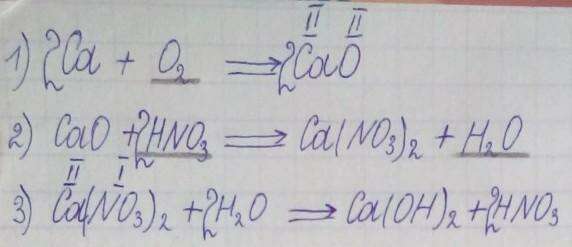 1) 2Ca + O₂ ⟹ 2CaO
II II
2) CaO + 2HNO₃ ⟹ Ca(NO₃)₂ + H₂O
II I
3) Ca(NO₃)₂ + 2H₂O ⟹ Ca(OH)₂ + 2HNO₃